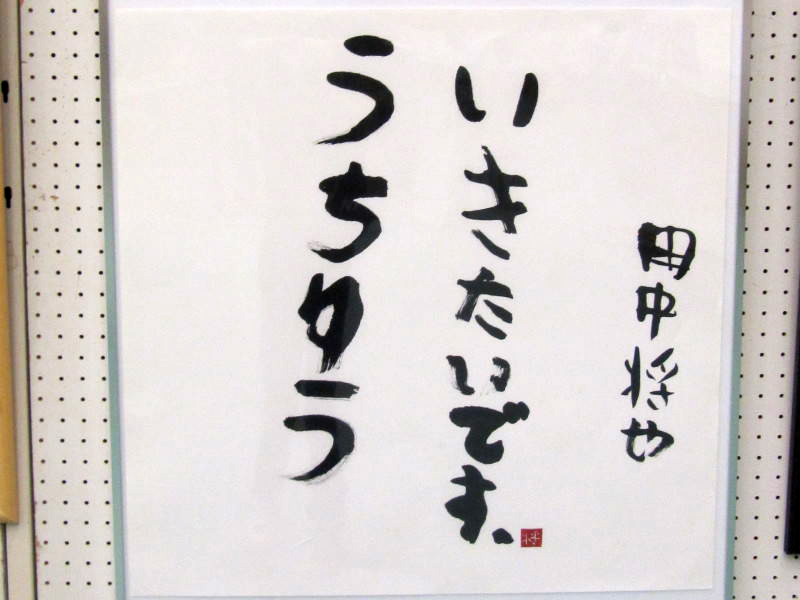 うちゆう
いきたいです、
田中将や
将